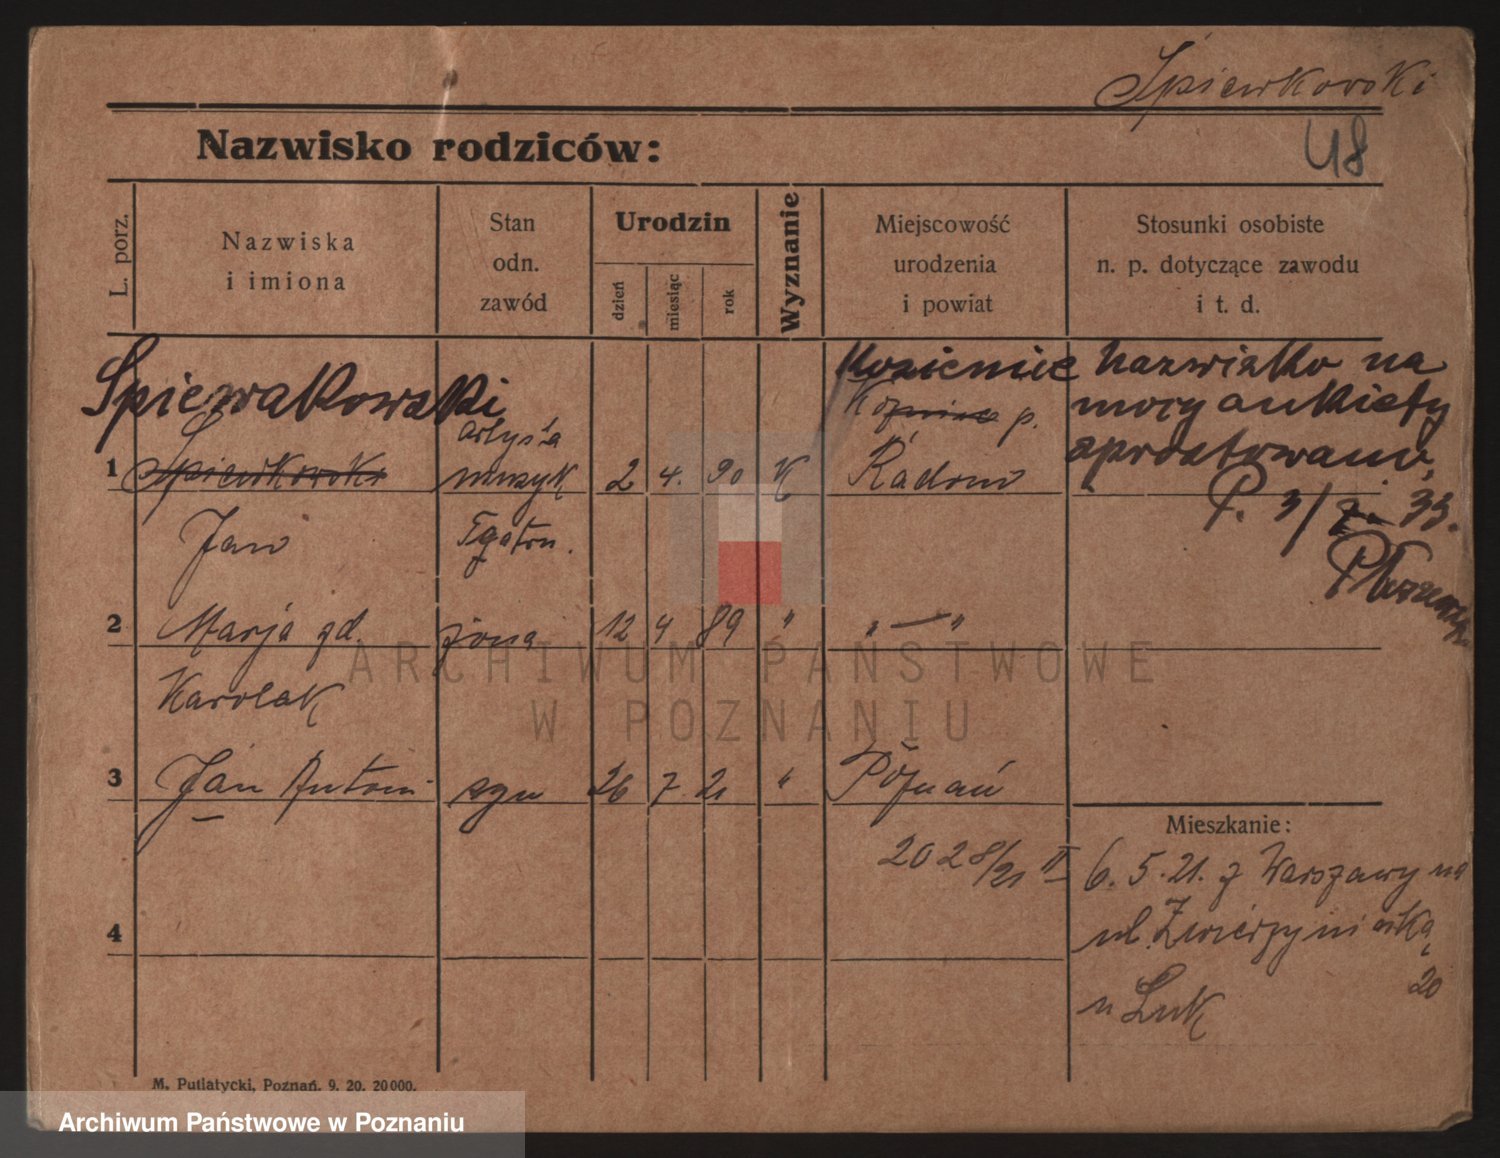 Śpiewkowski
48
Nazwisko rodziców:
L. porz.
Nazwiska
i imiona
Stan
odn.
zawód
Urodzin
dzień
miesiąc
rok
Wyznanie
Miejscowość
urodzenia
i powiat
Stosunki osobiste
n. p. dotyczące zawodu
i t. d.
Śpiewakowski
Kozienice
nazwisko na
mocy ankiety
sprostowano,
P. 3/7. 33.
artysta
p.
1 Śpiewkowski muzyk 2 4. 90 K Radom
Jan
2 Marja gd. żona 12 4 89 " " — "
Karolak
3 Jan Antoni syn 26 7 21 " Poznań
2028/21 II
4
Mieszkanie:
6. 5. 21. z Warszawy na
ul. Zwierzyniecką
20
u Luk
M. Putiatycki, Poznań. 9. 20. 20000.
ARCHIWUM PAŃSTWOWE
W POZNANIU
Archiwum Państwowe w Poznaniu